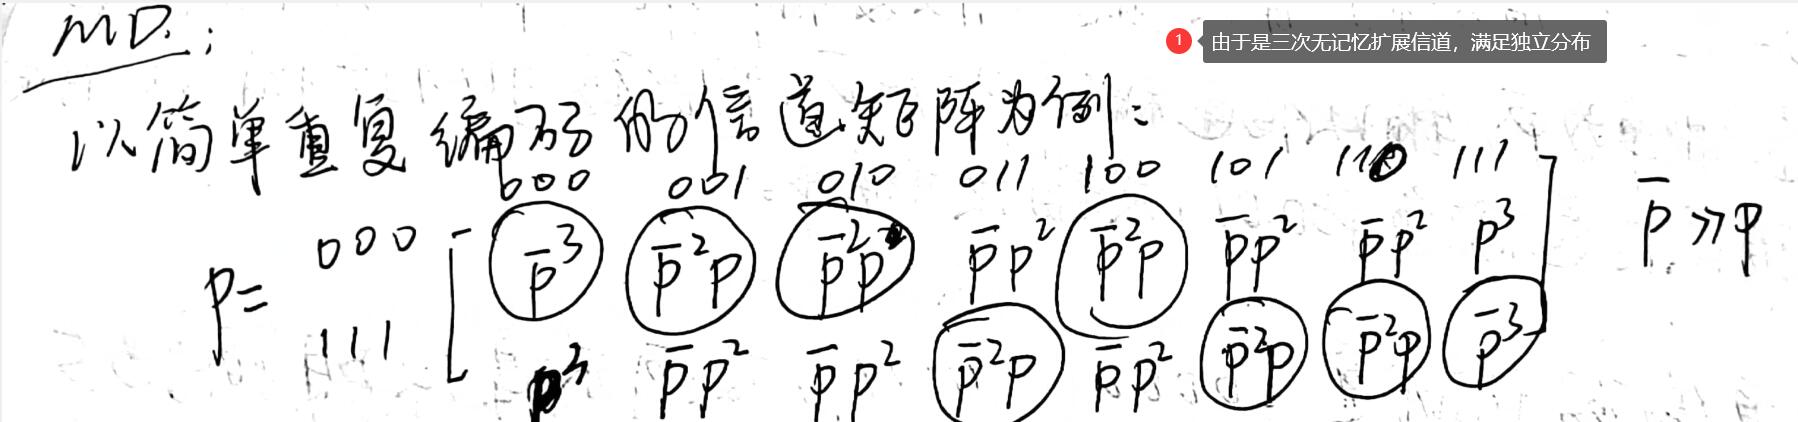 MD:
1 由于是三次无记忆扩展信道，满足独立分布
以简单重复编码的信道矩阵为例：
000 001 010 011 100 101 110 111
000 p̄³ p̄²p p̄²p p̄p² p̄²p p̄p² p̄p² p³ p̄≫p
p=
111 p³ p̄p² p̄p² p̄²p p̄p² p̄²p p̄²p p̄³